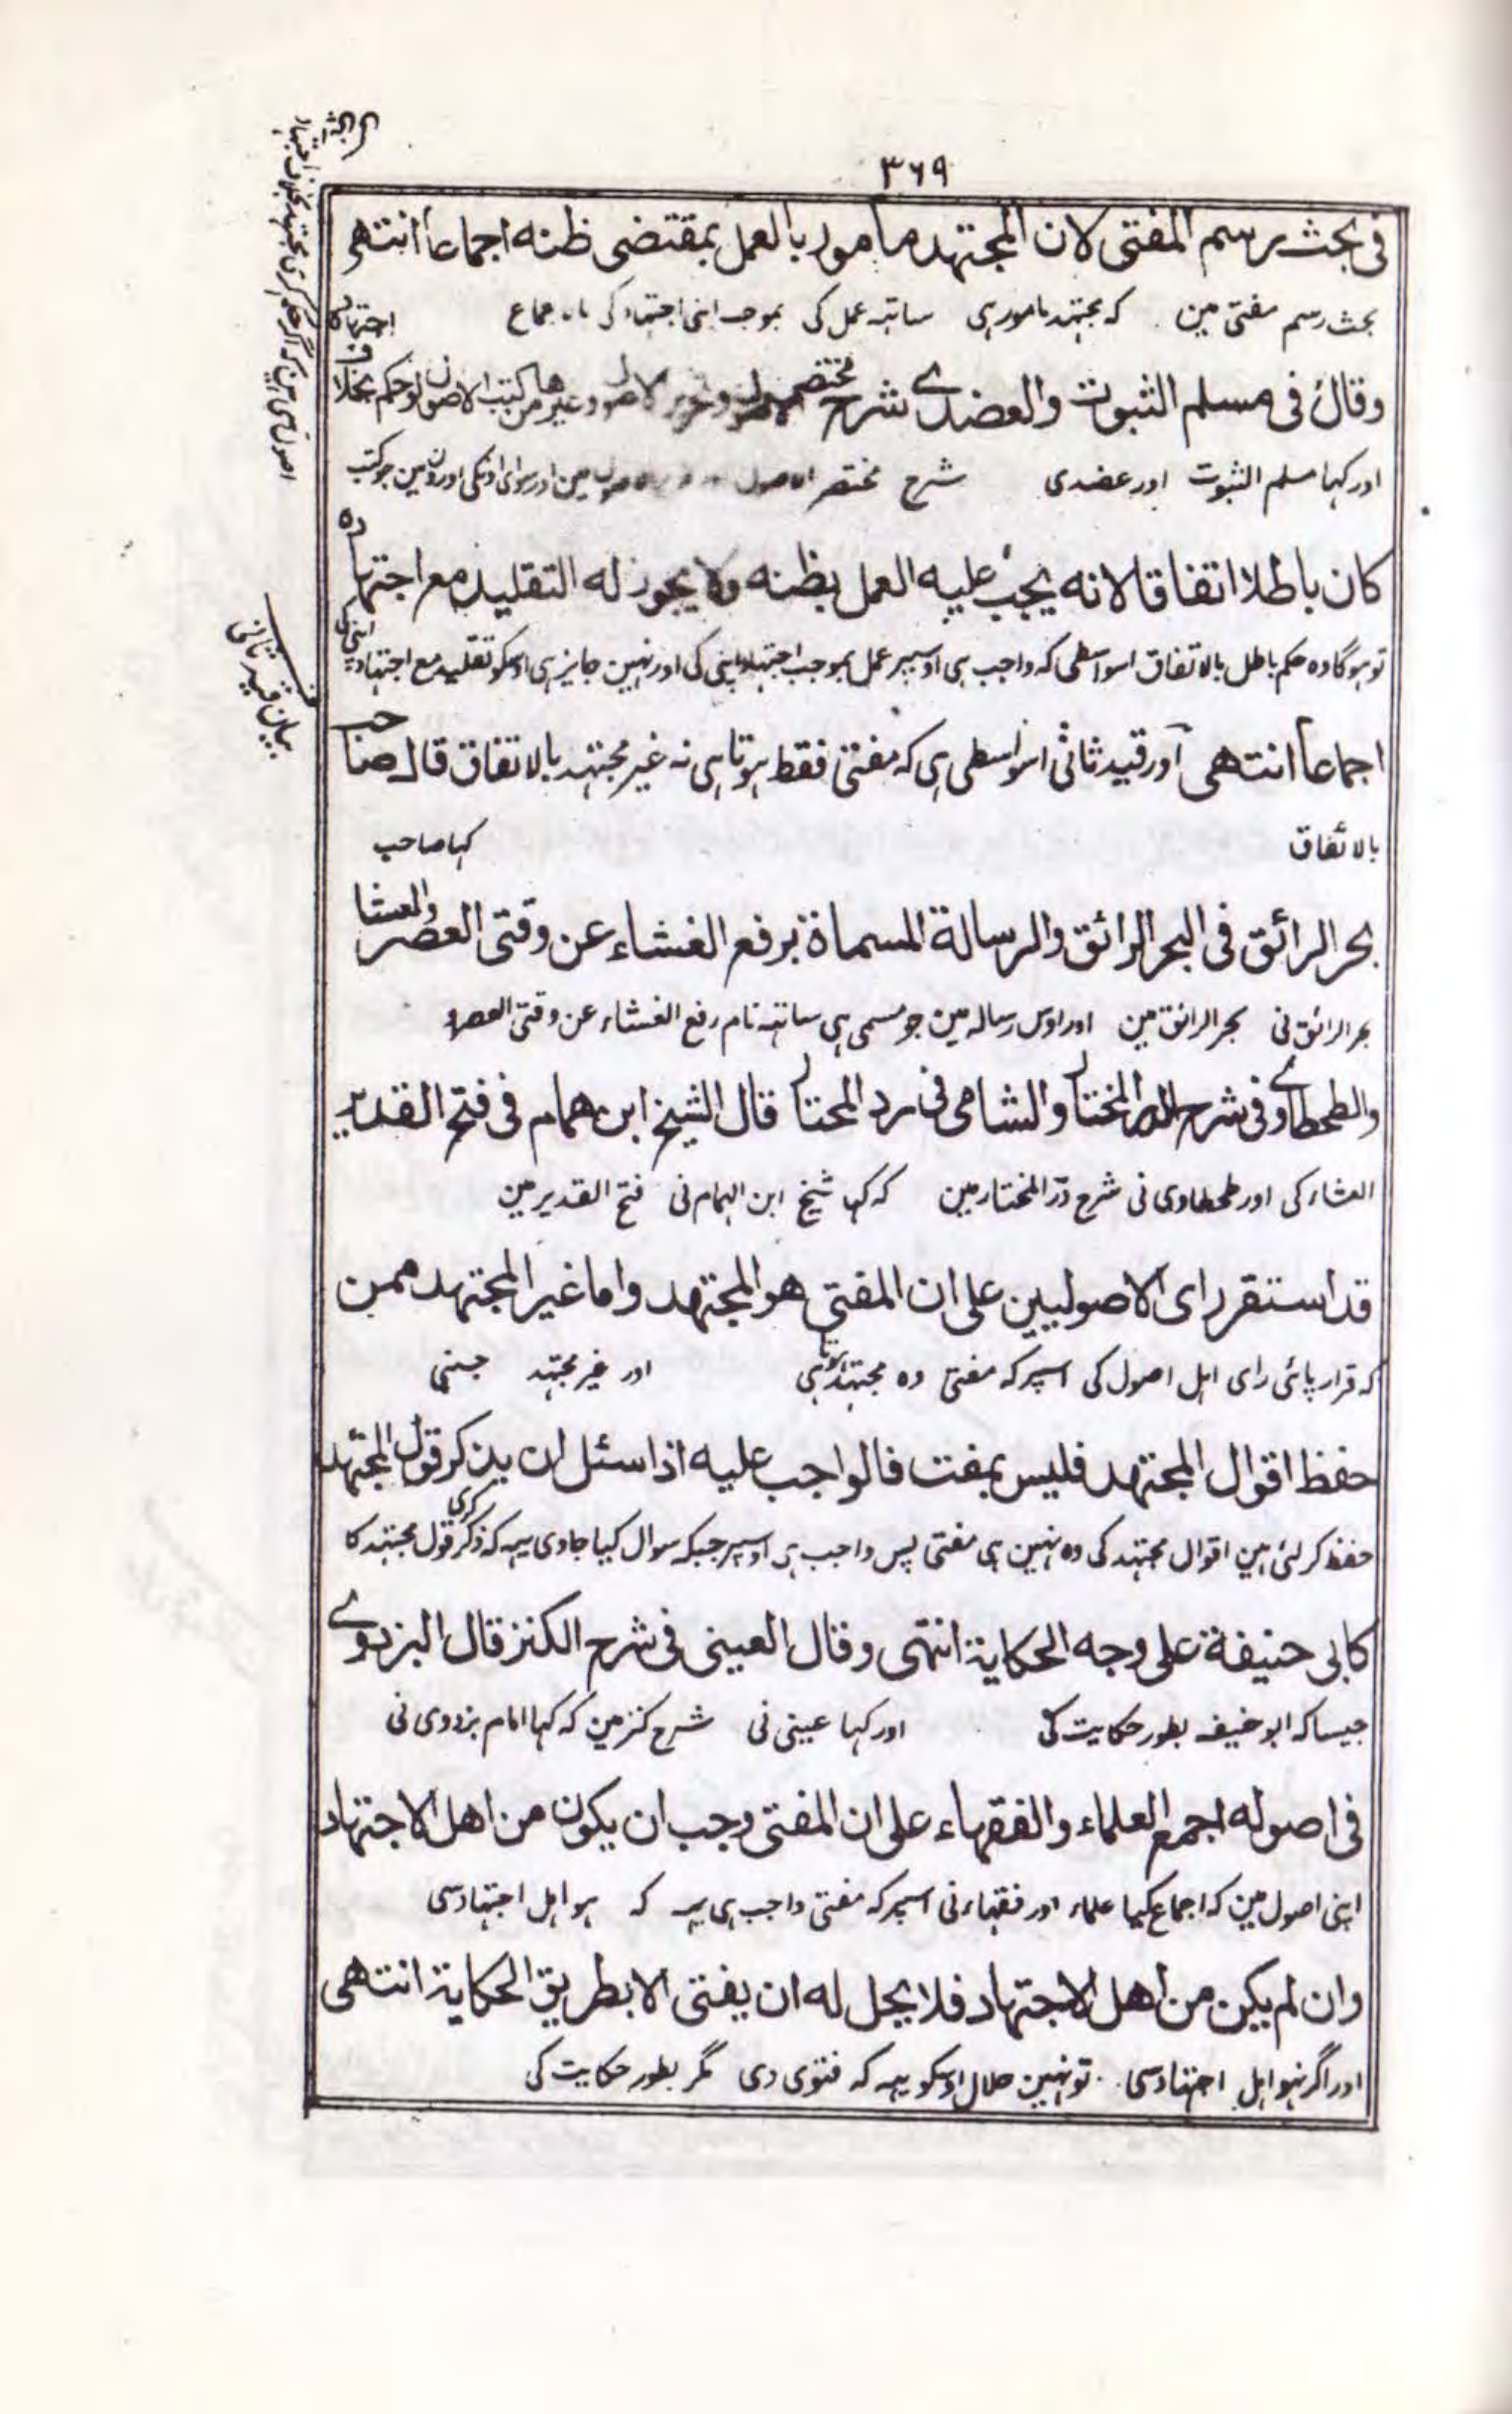 ٣٦٩
فى بحث رسم المفتى لان المجتهد مامور بالعمل بمقتضى ظنه اجماعا انتهى
بحث رسم مفتی مین کہ مجتہد مامور ہی ساتہہ عمل کی بموجب اپنی اجتہاد کی
وقال فى مسلم الثبوت والعضدے شرح مختصر الاصول وغيرها من كتب الاصول لو حكم بخلاف اجتهاده
اور کہا مسلم الثبوت اور عضدی شرح مختصر الاصول مین اور سوای اونکی اورون مین جو کتب
كان باطلا اتفاقا لانه يجب عليه العمل بظنه ولا يجوز له التقليد مع اجتهاده
تو ہو گا وہ حکم باطل بالاتفاق اسواسطی کہ واجب ہی اوسپر عمل بموجب اجتہاد اپنی کی اور نہین جایز ہی اوسکو تقلید مع اجتہاد اپنی کی
اجماعا انتهى اور قید ثانی اسواسطی ہی کہ مفتی فقط ہوتا ہی نہ غیر مجتہد بالاتفاق قال صاحب
بالاتفاق کہا صاحب
بحر الرائق فى البحر الرائق والرسالة المسماة برفع الغشاء عن وقتى العصر والعشا
بحر الرائق نی بحر الرائق مین اور اوس رسالہ مین جو مسمی ہی ساتہہ نام رفع الغشاء عن وقتی العصر و
والطحطاوے فى شرح الدر المختار والشامى فى رد المحتار قال الشيخ ابن همام فى فتح القدير
العشاء کی اور طحطاوی نی شرح در المختار مین کہ کہا شیخ ابن الہمام نی فتح القدیر مین
قد استقر راى الاصوليين على ان المفتى هو المجتهد واما غير المجتهد ممن
کہ قرار پائی رای اہل اصول کی اسپر کہ مفتی وہ مجتہد ہوتا ہی اور غیر مجتہد جسنی
حفظ اقوال المجتهد فليس بمفت فالواجب عليه اذا سئل ان يذكر قول المجتهد
حفظ کر لئی ہین اقوال مجتہد کی وہ نہین ہی مفتی پس واجب ہی اوسپر جبکہ سوال کیا جاوی یہہ کہ ذکر کری قول مجتہد کا
كابى حنيفة على وجه الحكاية انتهى وقال العينى فى شرح الكنز قال البزدوے
جیسا کہ ابو حنیفہ بطور حکایت کی اور کہا عینی نی شرح کنز مین کہ کہا امام بزدوی نی
فى اصوله اجمع العلماء والفقهاء على ان المفتى وجب ان يكون من اهل الاجتهاد
اپنی اصول مین کہ اجماع کیا علماء اور فقہاء نی اسپر کہ مفتی واجب ہی یہہ کہ ہو اہل اجتہاد سی
وان لم يكن من اهل الاجتهاد فلا يحل له ان يفتى الا بطريق الحكاية انتهى
اور اگر نہو اہل اجتہاد سی تو نہین حلال اوسکو یہہ کہ فتوی دی مگر بطور حکایت کی
بیان قید ثانی